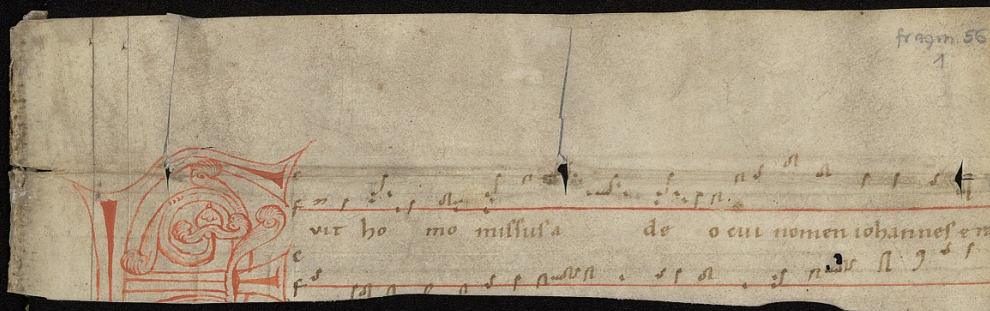 fragm. 56
1
c
F
vit ho mo missus a de o cui nomen iohannes e
c
F